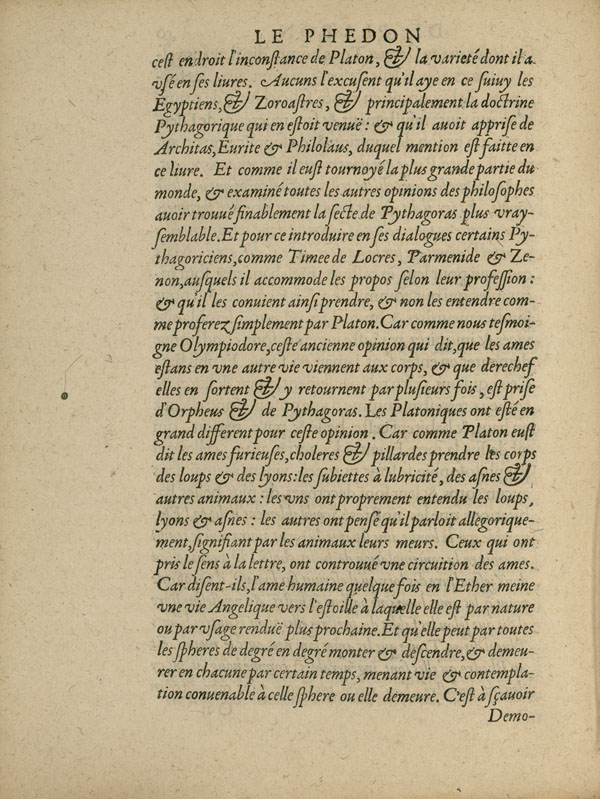 LE PHEDON
cest endroit l'inconſtance de Platon, & la varieté dont il a
vſé en ſes liures. Aucuns l'excuſent qu'il aye en ce ſuiuy les
Egyptiens, & Zoroaſtres, & principalement la doctrine
Pythagorique qui en eſtoit venuë : & qu'il auoit appriſe de
Architas, Eurite & Philolaus, duquel mention eſt faitte en
ce liure. Et comme il euſt tournoyé la plus grande partie du
monde, & examiné toutes les autres opinions des philoſophes
auoir trouué finablement la ſecte de Pythagoras plus vray-
ſemblable. Et pour ce introduire en ſes dialogues certains Py-
thagoriciens, comme Timee de Locres, Parmenide & Ze-
non, auſquels il accommode les propos ſelon leur profeſſion :
& qu'il les conuient ainſi prendre, & non les entendre com-
me proferez ſimplement par Platon. Car comme nous teſmoi-
gne Olympiodore, ceſte ancienne opinion qui dit, que les ames
eſtans en vne autre vie viennent aux corps, & que derechef
elles en ſortent & y retournent par pluſieurs fois, eſt priſe
d'Orpheus & de Pythagoras. Les Platoniques ont eſté en
grand different pour ceſte opinion. Car comme Platon euſt
dit les ames furieuſes, choleres & pillardes prendre les corps
des loups & des lyons: les ſubiettes à lubricité, des aſnes &
autres animaux : les vns ont proprement entendu les loups,
lyons & aſnes : les autres ont penſé qu'il parloit allegorique-
ment, ſignifiant par les animaux leurs meurs. Ceux qui ont
pris le ſens à la lettre, ont controuué vne circuition des ames.
Car diſent-ils, l'ame humaine quelque fois en l'Ether meine
vne vie Angelique vers l'eſtoille à laquelle elle eſt par nature
ou par vſage renduë plus prochaine. Et qu'elle peut par toutes
les ſpheres de degré en degré monter & deſcendre, & demeu-
rer en chacune par certain temps, menant vie & contempla-
tion conuenable à celle ſphere ou elle demeure. C'eſt à ſçauoir
Demo-